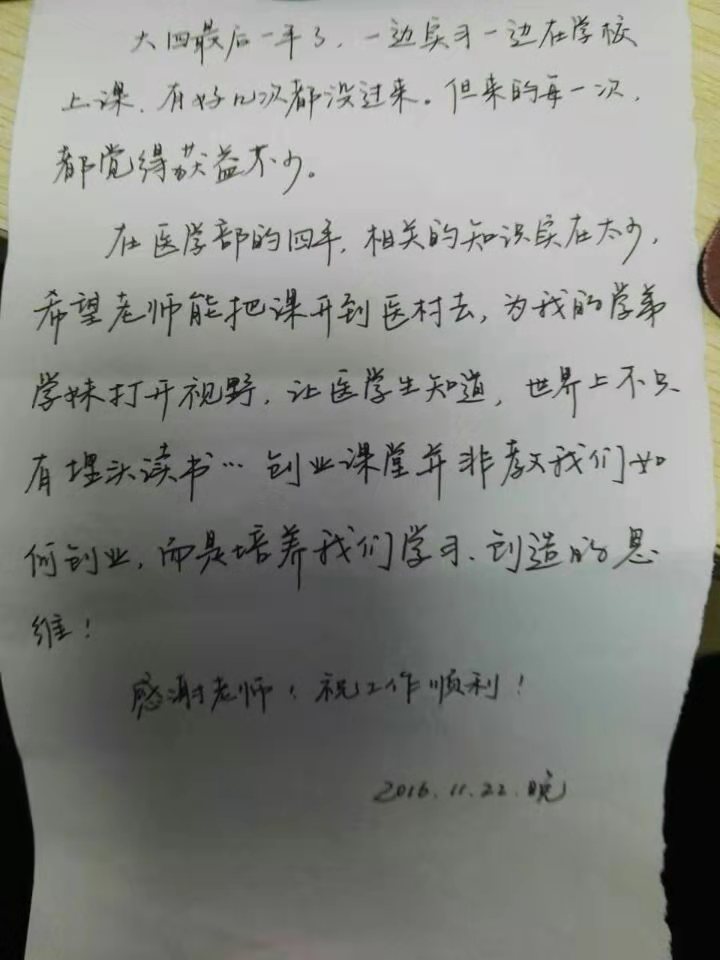 大四最后一年了，一边实习一边在学校
上课，有好几次都没过来。但来的每一次，
都觉得获益不少。
在医学部的四年，相关的知识实在太少，
希望老师能把课开到医村去，为我的学弟
学妹打开视野，让医学生知道，世界上不只
有埋头读书…创业课堂并非教我们如
何创业，而是培养我们学习、创造的思
维！
感谢老师！祝工作顺利！
2016.11.22.晚